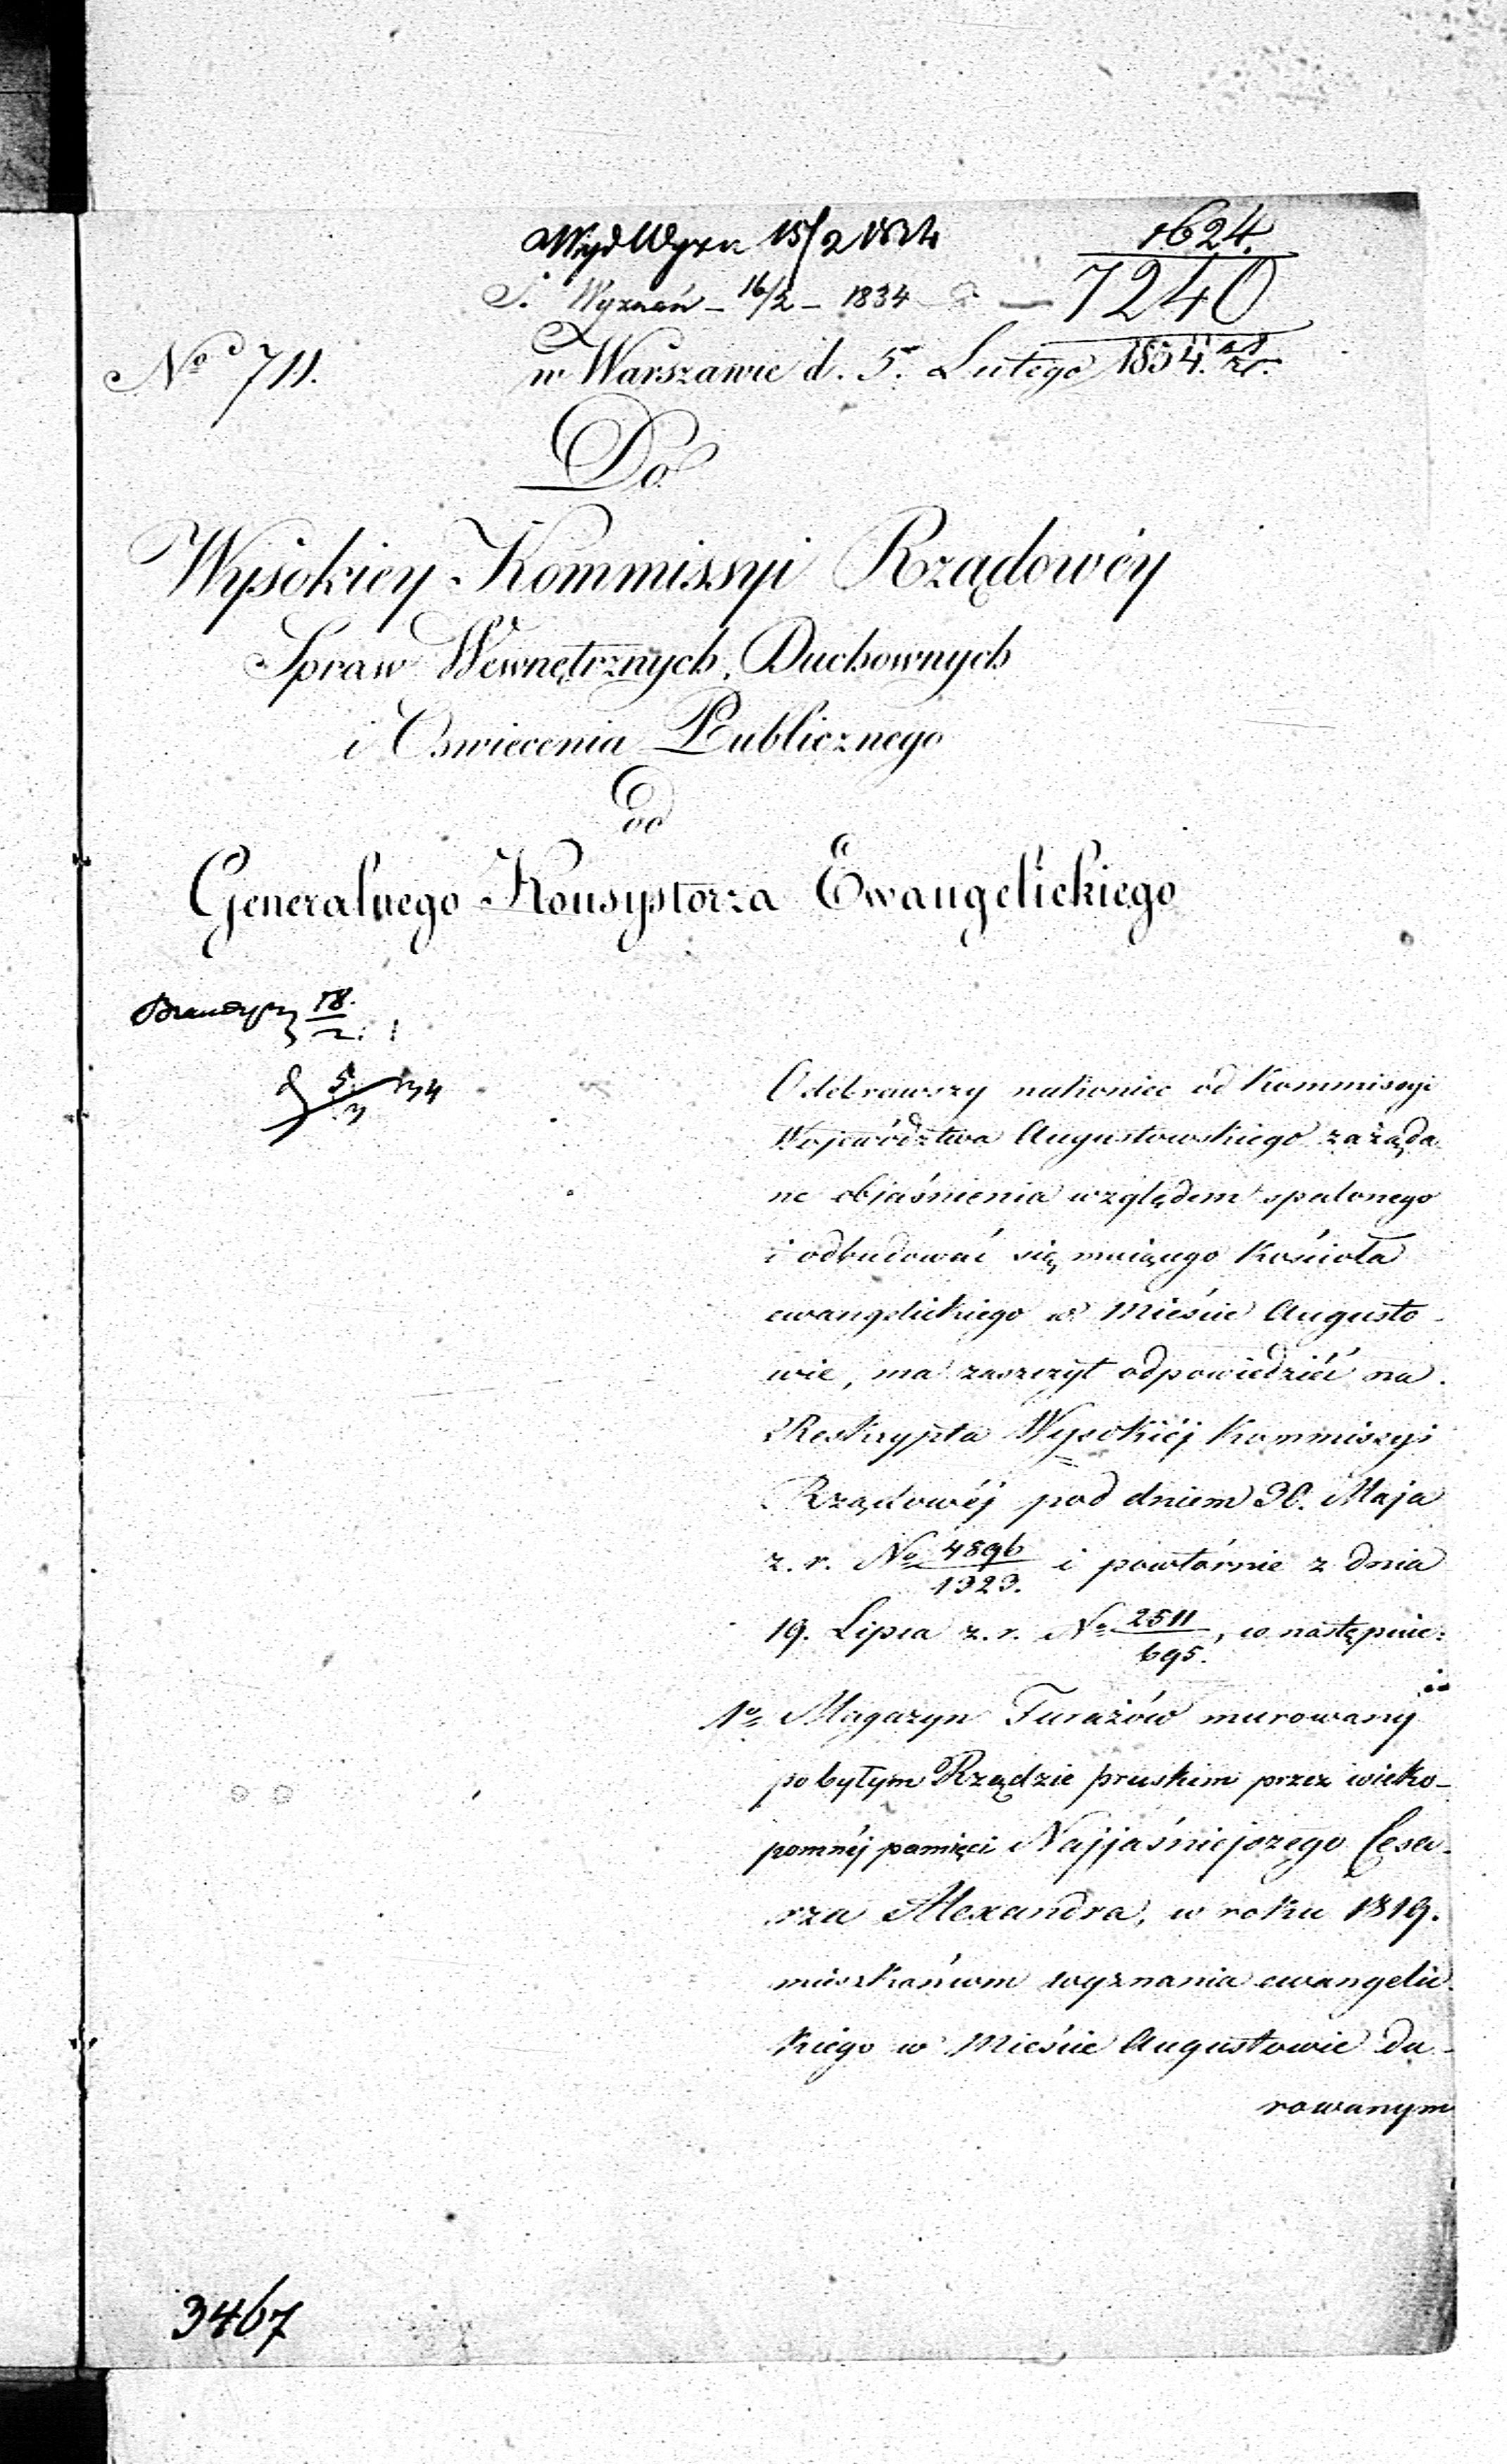 Wyd Wyzn 15/2 1834
1624.
7240
S. Wyznań – 16/2 – 1834
No 711.
w Warszawie d. 5. Lutego 1834.
Do
Wysokiey Kommissyi Rządowéy
Spraw Wewnętrznych, Duchownych
i Oswiecenia Publicznego
od
Generalnego Konsystorza Ewangelickiego
18.
2.
5
Odebrawszy nakoniec od Kommissyi
Województwa Augustowskiego zażąda
ne objaśnienia względem spalonego
i odbudować się maiącego Kościoła
ewangelickiego w Mieście Augusto-
wie, ma zaszczyt odpowiedzieć na
Reskrypta Wysokiéj Kommissyi
Rządowéj pod dniem 30. Maja
z. r. No 4896/1323. i powtórnie z dnia
19. Lipca z. r. No 2511/695., co następuie:
1o Magazyn Furażów murowany
po byłym Rządzie pruskim przez wieko-
pomnéj pamięci Najjaśniejszego Cesa-
rza Alexandra, w roku 1819.
mieszkańcom wyznania ewangelic-
kiego w Mieście Augustowie da-
rowanym
3467